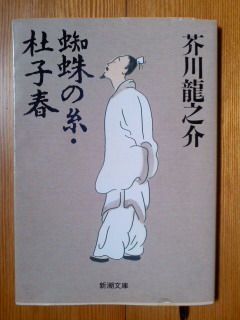 芥川龍之介
蜘蛛の糸・
杜子春
新潮文庫